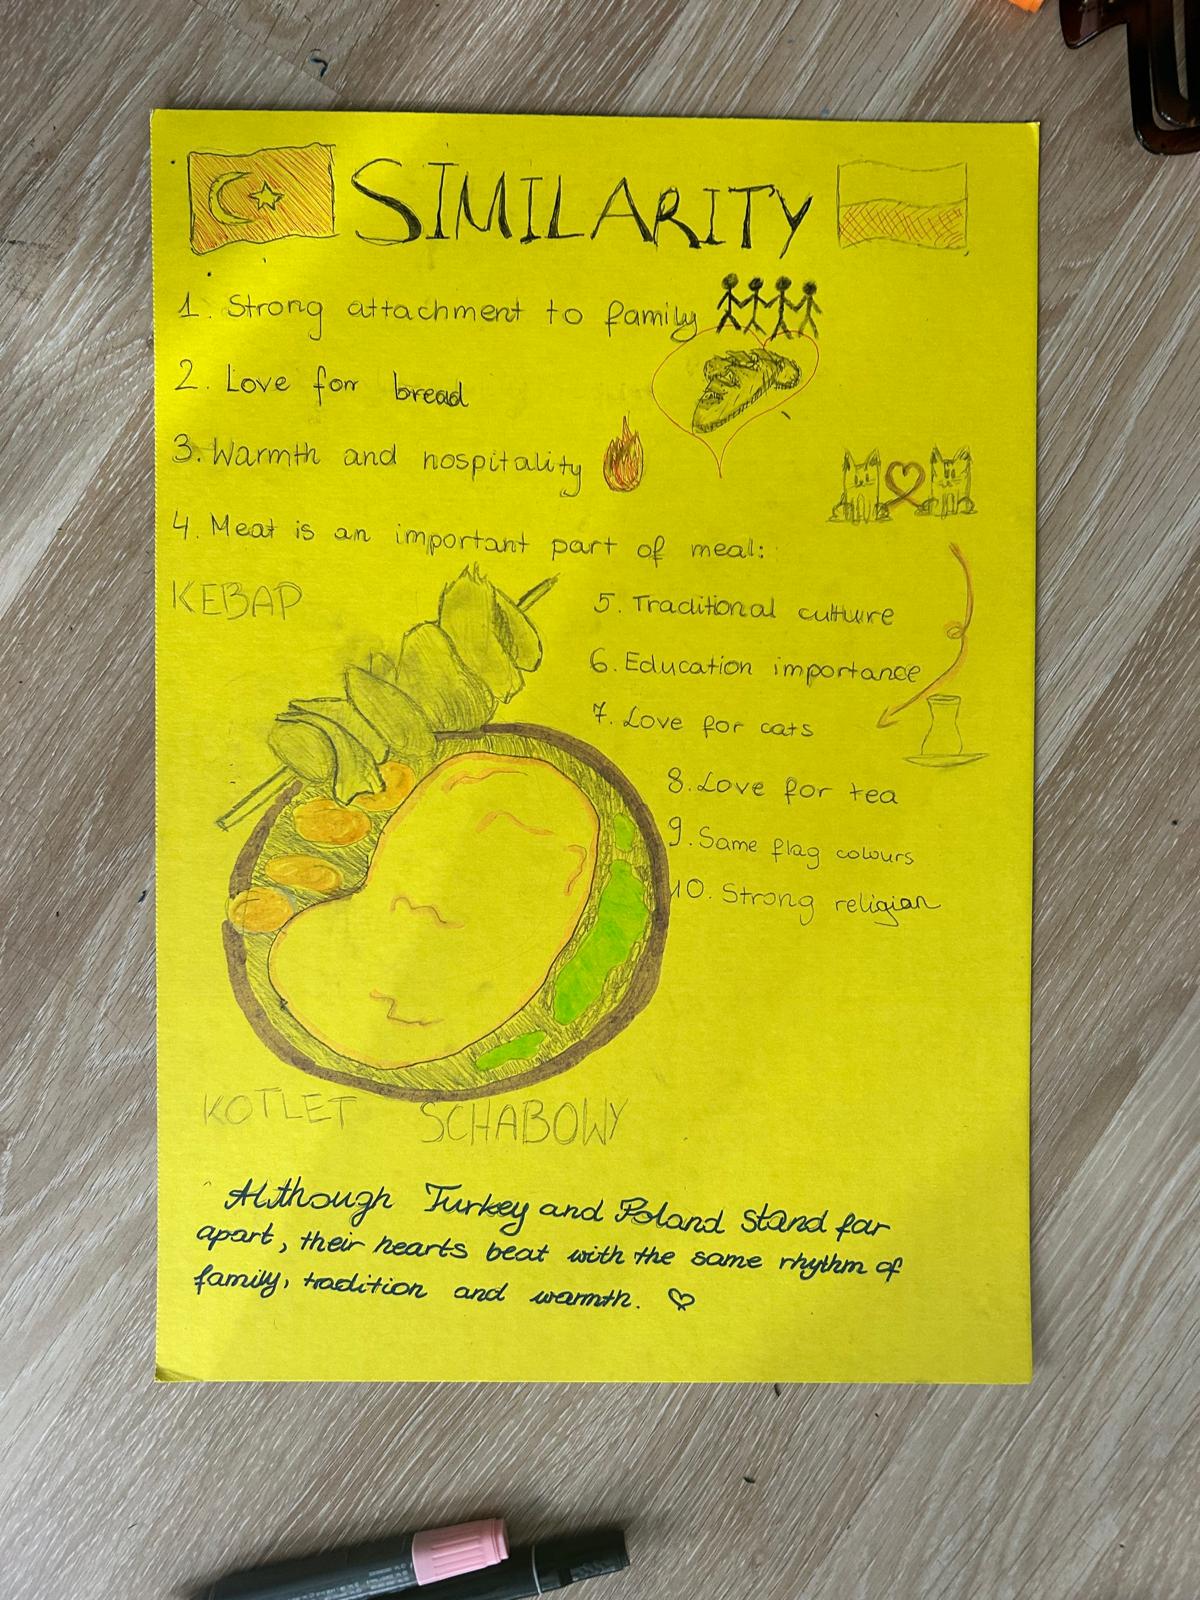 SIMILARITY
1. Strong attachment to family
2. Love for bread
3. Warmth and hospitality
4. Meat is an important part of meal:
KEBAP
5. Traditional culture
6. Education importance
7. Love for cats
8. Love for tea
9. Same flag colours
10. Strong religian
KOTLET SCHABOWY
Although Turkey and Poland stand far
apart, their hearts beat with the same rhythm of
family, tradition and warmth.